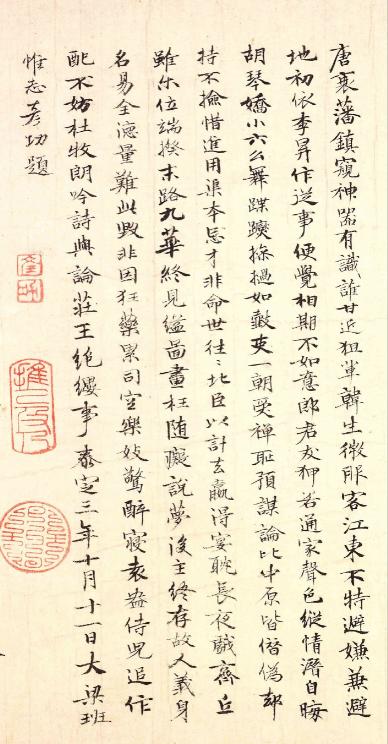 唐衰藩鎮窺神器有識誰甘近狙輩韓生微服客江東不特避嫌兼避
地初依李昪作從事便覺相期不如意郎君友狎若通家聲色縱情潛自晦
胡琴嬌小六幺舞蹀躞摻撾如鼓吏一朝受禪耻預謀論比中原皆僭偽却
持不撿惜進用渠本忌才非命世往〻北臣以計去贏得宴躭長夜戲齊丘
雖尔位端揆末路九華終見縊圖畫枉随癡說夢後主終存故人義身
名易全德量難此毀非因狂藥累司空樂妓驚醉寢袁盎侍児追作
配不妨杜牧朗吟詩與論莊王絶纓事泰定三年十月十一日大梁班
惟志彥功題